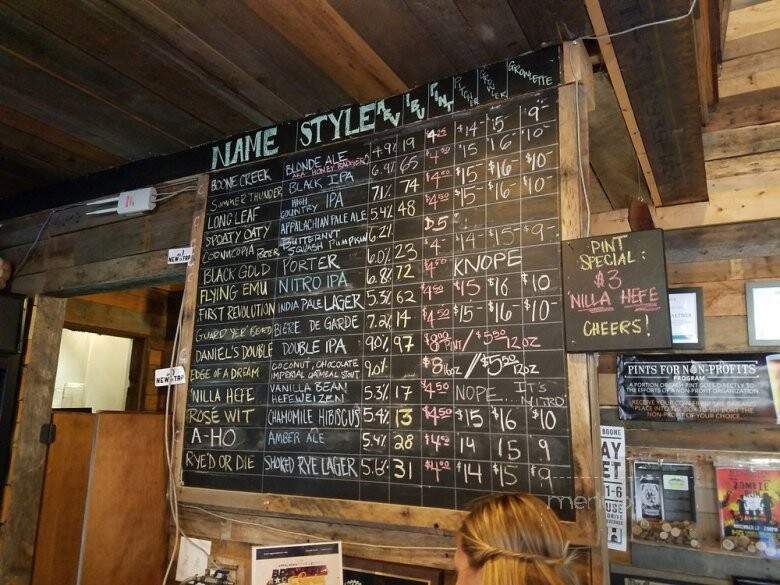 NAME STYLE ABV IBU PINT PITCHER GROWLER GROWLETTE
BOONE CREEK BLONDE ALE 4.9% 19 $14- $15- $9-
SUMMER THUNDER BLACK IPA 6.9% 65 $15 $16- $10-
LONG LEAF HIGH COUNTRY IPA 7.1% 74 $4.50 $15- $16- $10-
SPOATY OATY APPALACHIAN PALE ALE 5.4% 48 $4.50 $15- $16- $10-
CORNUCOPIA BEER BUTTERNUT SQUASH PUMPKIN 6.2% $5
BLACK GOLD PORTER 6.0% 23 $4- $14- $15- $9-
FLYING EMU NITRO IPA 6.8% 72 $4.50 KNOPE
FIRST REVOLUTION INDIA PALE LAGER 5.3% 62 $4.50 $15 $16 $10
GUARD YER BEARD BIERE DE GARDE 7.2% 14 $4.50 $15- $16- $10-
DANIEL'S DOUBLE DOUBLE IPA 9.0% 97 $8.00 PINT / $5.50 12OZ
EDGE OF A DREAM COCONUT, CHOCOLATE IMPERIAL OATMEAL STOUT 9.0% $8 16oz / $5.50 12OZ
'NILLA HEFE VANILLA BEAN HEFEWEIZEN 5.3% 17 $4.50 NOPE... IT'S NITRO
ROSÉ WIT CHAMOMILE HIBISCUS 5.4% 13 $4.50 $15 $16 $10
A-HO AMBER ALE 5.4% 28 14 15 9
RYE'D OR DIE SMOKED RYE LAGER 5.6% 31 $14 $15 $9
PINT
SPECIAL:
$3
'NILLA HEFE
CHEERS!
NEW TRP
NEW TRP
PINTS FOR NON-PROFITS
PROGRAM
A PORTION OF EACH PINT GOES DIRECTLY TO
THE EFFORTS OF A NON-PROFIT ORGANIZATION
PLACE INTO THE
NON-PROFIT OF YOUR CHOICE
BOONE
1-6
DRIVE
ZOMBIE
RUN